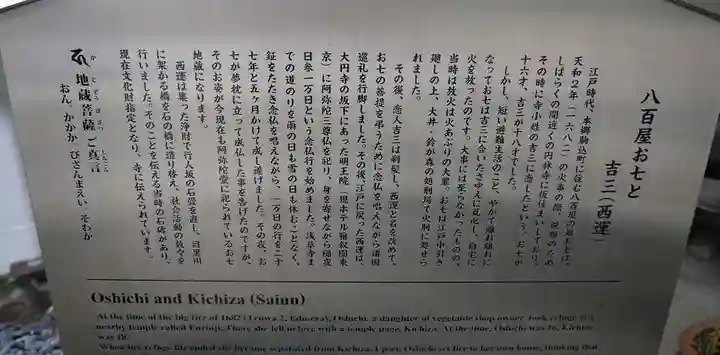 八百屋お七と
吉三（西運）
江戸時代、本郷駒込町に住む八百屋の娘お七は、
天和２年（一六八二）の火事の際、避難のため
しばらくの間近くの円林寺に仮住まいしており、
その時に寺小姓の吉三に恋したという。お七が
十六才、吉三が十八才でした。
しかし、短い避難生活のこと、やがて離れ離れに
なってお七は吉三に会いたさゆえに乱心し、自宅に
火を放ったのです。大事には至らなかったものの、
当時は放火は火あぶりの大罪。お七は江戸中引き
廻しの上、大井・鈴ヶ森の処刑場で火刑に処せら
れました。
その後、恋人吉三は剃髪し、西運と名を改めて、
お七の菩提を弔うために念仏を唱えながら諸国
巡礼を行脚しました。その後、江戸に戻った西運は、
大円寺の坂下にあった明王院（現ホテル雅叙園東
京）に阿弥陀三尊仏を祀り、身を寄せながら隔夜
日参一万日という念仏行を始めました。浅草寺ま
での道のりを雨の日も雪の日も休むことなく、
鉦をたたき念仏を唱えながら、一万日の行を二十
七年と五ヶ月かけて成し遂げました。その夜、お
七が夢枕に立って成仏した事を告げたのですが、
そのお姿が今現在も阿弥陀堂に祀られているお七
地蔵になります。
西運は集った浄財で行人坂の石畳を直し、目黒川
に架かる橋を石の橋に造り替え、社会活動の数々を
行いました。そのことを伝える当時の石碑があり、
現在文化財指定となり、寺に伝えられています。
地蔵菩薩ご真言
おん、かかか、びさんまえい、そわか
Oshichi and Kichiza (Saiun)
At the time of the big fire of 1682 (Tenwa 2, Edo-era), Oshichi, a daughter of vegetable shop owner took refuge
nearby temple called Enrinji. There she fell in love with a temple page, Kichiza. At the time, Oshichi was 16, Kichiza
was 18.
When her refuge life ended she became separated from Kichiza. Oshichi set fire to her own house, thinking that